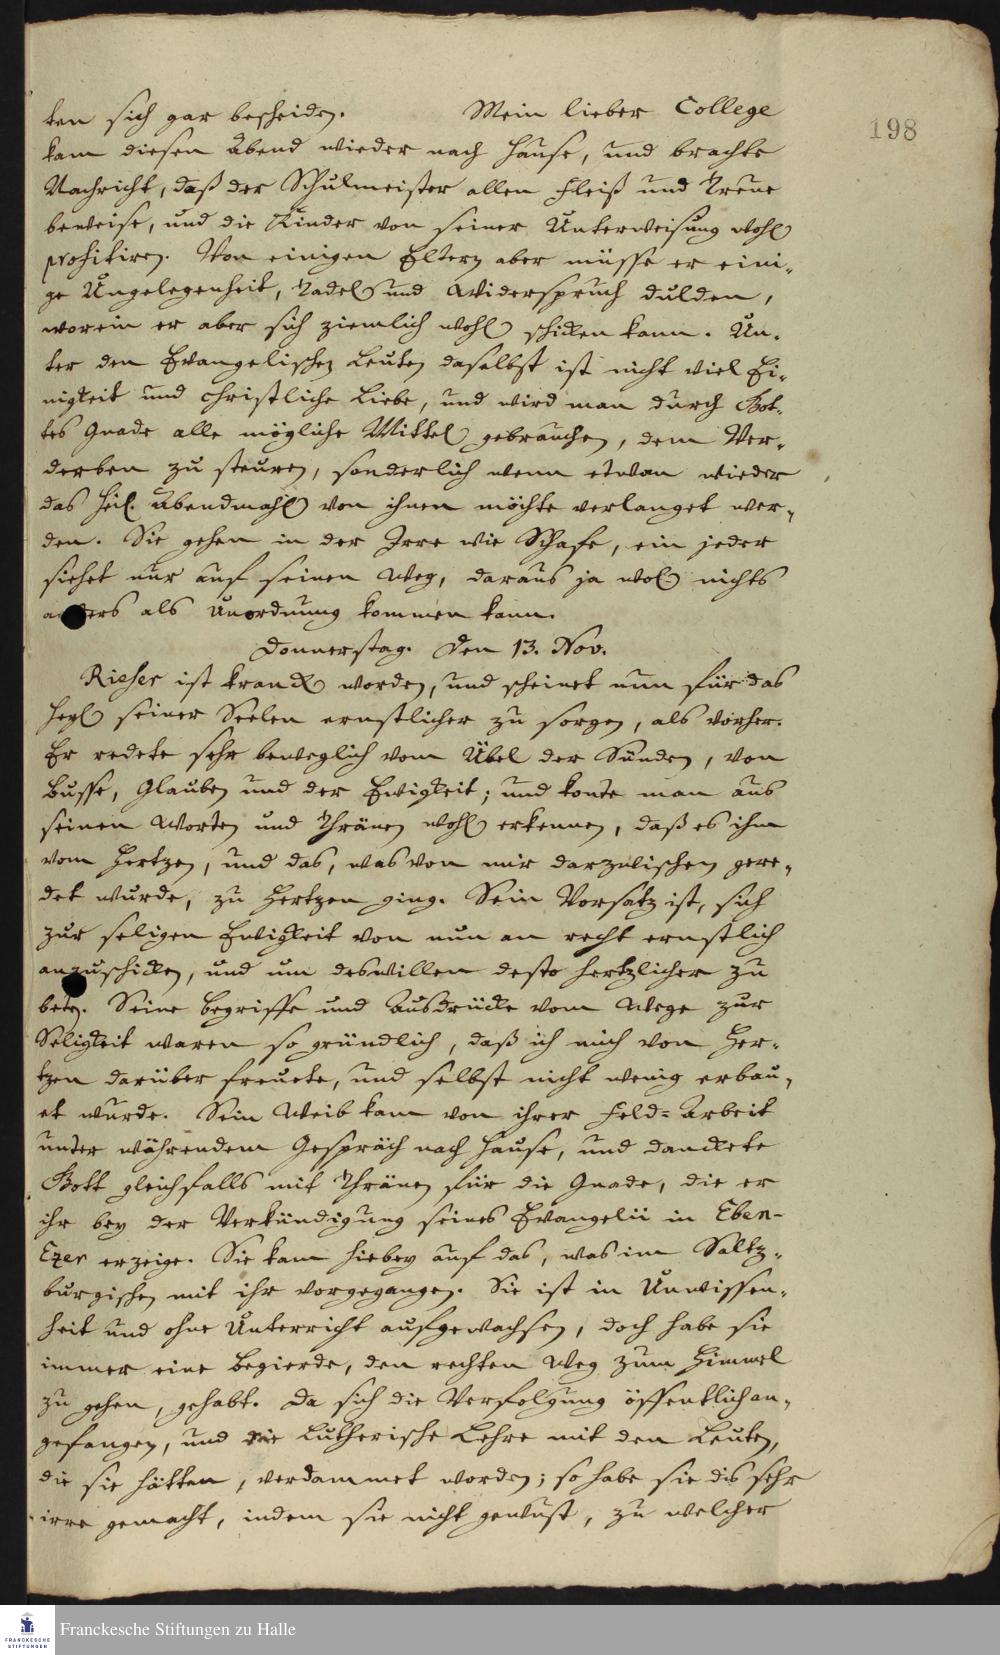 198
ten sich gar bescheiden. Mein lieber College
kam diesen Abend wieder nach Hause, und brachte
Nachricht, daß der Schulmeister allen Fleiß und Treue
beweise, und die Kinder von seiner Unterweisung wohl
profitiren. Von einigen Eltern aber müsse er eini-
ge Ungelegenheit, Tadel und Widerspruch dulden,
worein er aber sich ziemlich wohl schicken kann. Un-
ter den Evangelischen Leuten daselbst ist nicht viel Ei-
nigkeit und christliche Liebe, und wird man durch Got-
tes Gnade alle mögliche Mittel gebrauchen, dem Ver-
derben zu steuren, sonderlich wenn etwan wieder
das Heil. Abendmahl von ihnen möchte verlanget wer-
den. Sie gehen in der Irre wie Schafe, ein jeder
siehet nur auf seinen Weg, daraus ja wol nichts
anders als Unordnung kommen kann.
Donnerstag. Den 13. Nov.
Rieser ist kranck worden, und scheinet nun für das
Heyl seiner Seelen ernstlicher zu sorgen, als vorher.
Er redete sehr beweglich vom Übel der Sünden, von
Busse, Glauben und der Ewigkeit; und konte man aus
seinen Worten und Thränen wohl erkennen, daß es ihm
vom Hertzen, und das, was von mir darzwischen gere-
det wurde, zu Hertzen ging. Sein Vorsatz ist, sich
zur seligen Ewigkeit von nun an recht ernstlich
anzuschicken, und um deswillen desto hertzlicher zu
beten. Seine Begriffe und Ausdrücke vom Wege zur
Seligkeit waren so gründlich, daß ich mich von Her-
tzen darüber freuete, und selbst nicht wenig erbau-
et wurde. Sein Weib kam von ihrer Feld-Arbeit
unter währendem Gespräch nach Hause, und danckete
Gott gleichfalls mit Thränen für die Gnade, die er
ihr bey der Verkündigung seines Evangelii in Eben-
Ezer erzeige. Sie kam hiebey auf das, was im Saltz-
burgischen mit ihr vorgegangen. Sie ist in Unwissen-
heit und ohne Unterricht aufgewachsen, doch habe sie
immer eine Begierde, den rechten Weg zum Himmel
zu gehen, gehabt. Da sich die Verfolgung öffentlich an-
gefangen, und die Lutherische Lehre mit den Leuten,
die sie hätten, verdammet worden; so habe sie dis sehr
irre gemacht, indem sie nicht gewust, zu welcher
FRANCKESCHE
STIFTUNGEN
Franckesche Stiftungen zu Halle